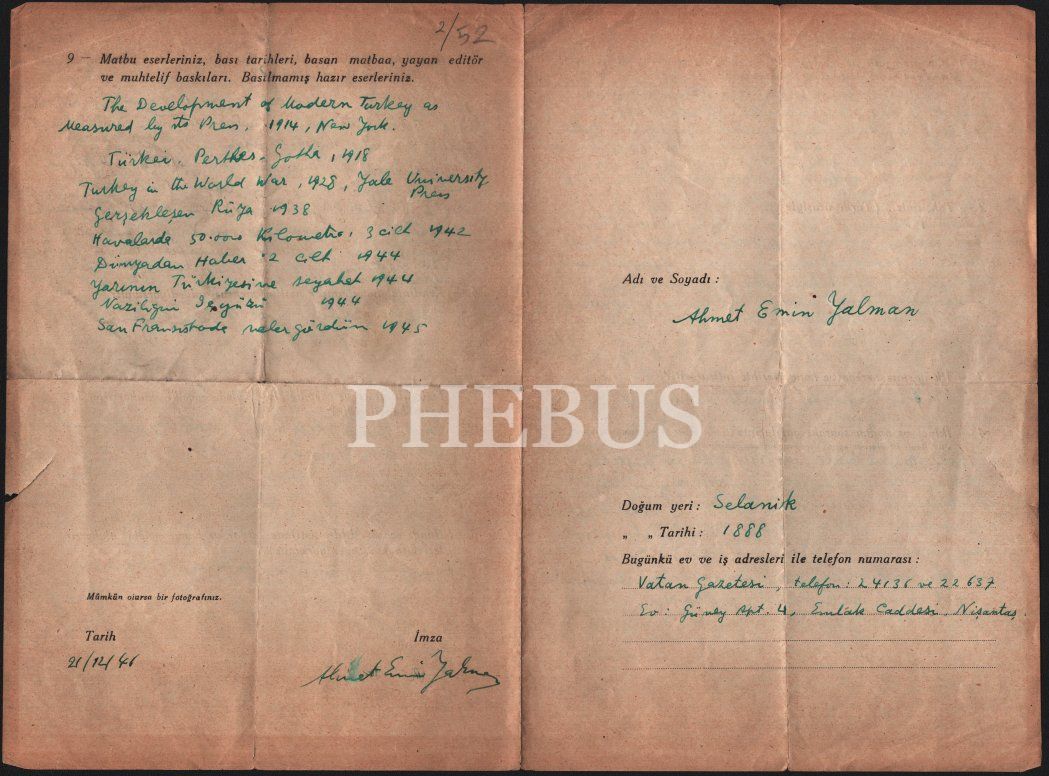 2/52
9 — Matbu eserleriniz, bası tarihleri, basan matbaa, yayan editör
ve muhtelif baskıları. Basılmamış hazır eserleriniz.
The Development of Modern Turkey as
Measured by its Press, 1914, New York.
Türkei. Perthes-Gotha, 1918
Turkey in the World War, 1928, Yale University
Press
Gerçekleşen Rüya 1938
Havalarda 50.000 Kilometre, 3 cilt 1942
Dünyadan Haber 2 cilt 1944
Yarının Türkiyesine seyahat 1944
Naziliğin İçyüzü 1944
San Fransiskoda neler gördüm 1945
Mümkün olursa bir fotoğrafınız.
Tarih İmza
21/12/46 Ahmet Emin Yalman
Adı ve Soyadı :
Ahmet Emin Yalman
PHEBUS
Doğum yeri : Selanik
„ „ Tarihi : 1888
Bugünkü ev ve iş adresleri ile telefon numarası :
Vatan Gazetesi, telefon : 24136 ve 22637
Ev : Güney Apt. 4, Emlak Caddesi, Nişantaş.